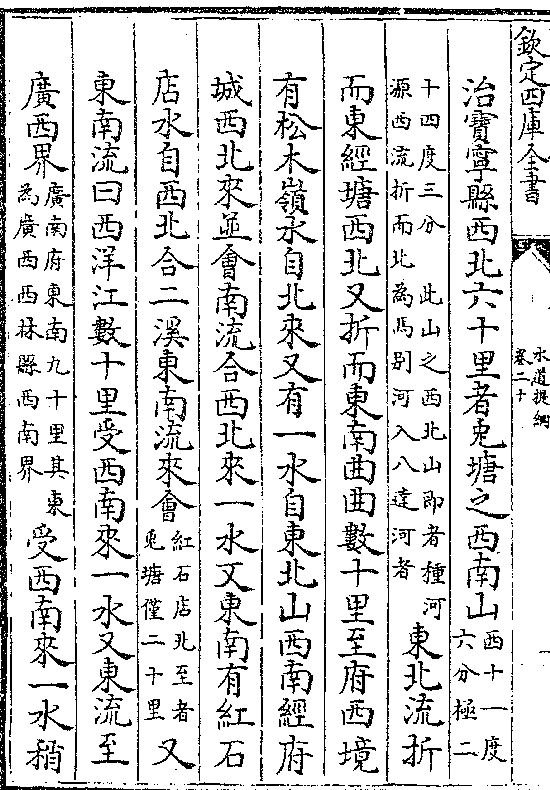 欽定四庫全書
水道提綱
卷二十
治寶寧縣西北六十里者兎塘之西南山西十一度六分極二
十四度三分此山之西北山即者種河源西流折而北為馬别河入八達河者東北流折
而東經塘西北又折而東南曲曲數十里至府西境
有松木嶺水自北來又有一水自東北山西南經府
城西北來並會南流合西北來一水又東南有紅石
店水自西北合二溪東南流來會紅石店北至者兎塘僅二十里又
東南流曰西洋江數十里受西南來一水又東流至
廣西界廣南府東南九十里其東為廣西西林縣西南界受西南來一水稍